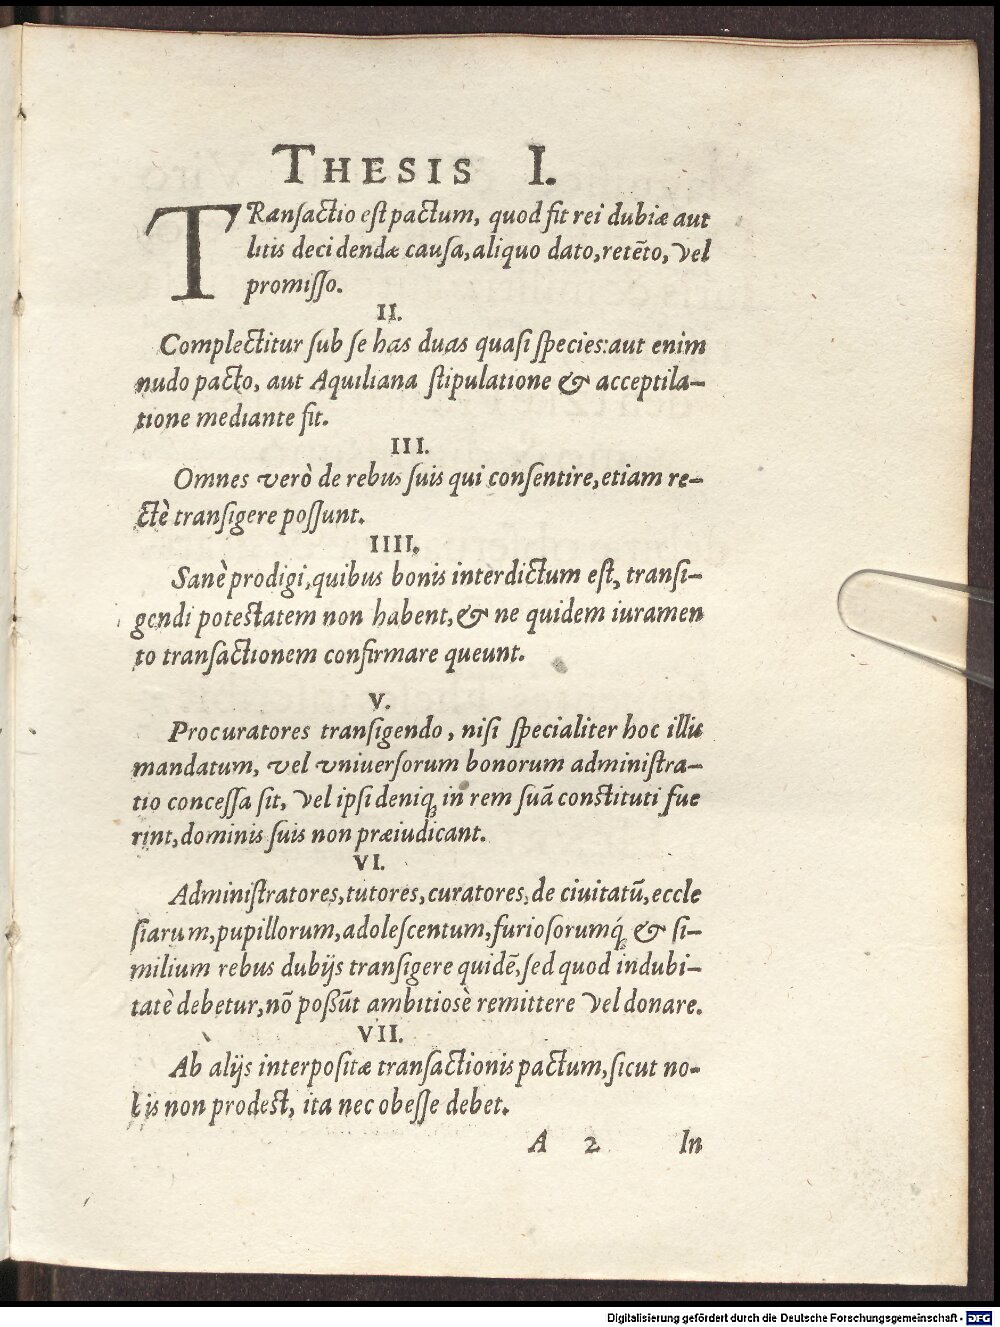 THESIS I.
TRanſactio eſt pactum, quod fit rei dubiæ aut
litis decidendæ cauſa, aliquo dato, retẽto, vel
promiſſo.
II.
Complectitur ſub ſe has duas quaſi ſpecies: aut enim
nudo pacto, aut Aquiliana ſtipulatione & acceptila-
tione mediante fit.
III.
Omnes verò de rebus ſuis qui conſentire, etiam re-
ctè tranſigere poſſunt.
IIII.
Sanè prodigi, quibus bonis interdictum eſt, tranſi-
gendi poteſtatem non habent, & ne quidem iuramen
to tranſactionem confirmare queunt.
V.
Procuratores tranſigendo, niſi ſpecialiter hoc illis
mandatum, vel vniuerſorum bonorum adminiſtra-
tio conceſſa ſit, vel ipſi deniq; in rem ſuã conſtituti fue
rint, dominis ſuis non præiudicant.
VI.
Adminiſtratores, tutores, curatores, de ciuitatũ, eccle
ſiarum, pupillorum, adoleſcentum, furioſorumq́; & ſi-
milium rebus dubijs tranſigere quidẽ, ſed quod indubi-
tatè debetur, nõ poßũt ambitiosè remittere vel donare.
VII.
Ab alijs interpoſitæ tranſactionis pactum, ſicut no-
bis non prodeſt, ita nec obeſſe debet.
A 2 In
Digitalisierung gefördert durch die Deutsche Forschungsgemeinschaft - DFG